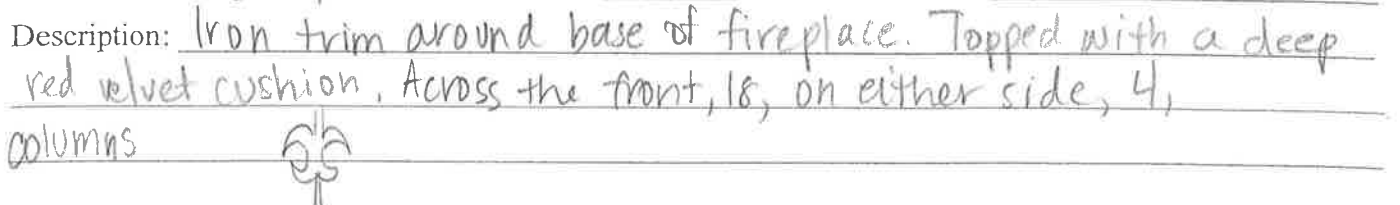 Description: Iron trim around base of fireplace. Topped with a deep
red velvet cushion. Across the front, 18, on either side, 4,
columns